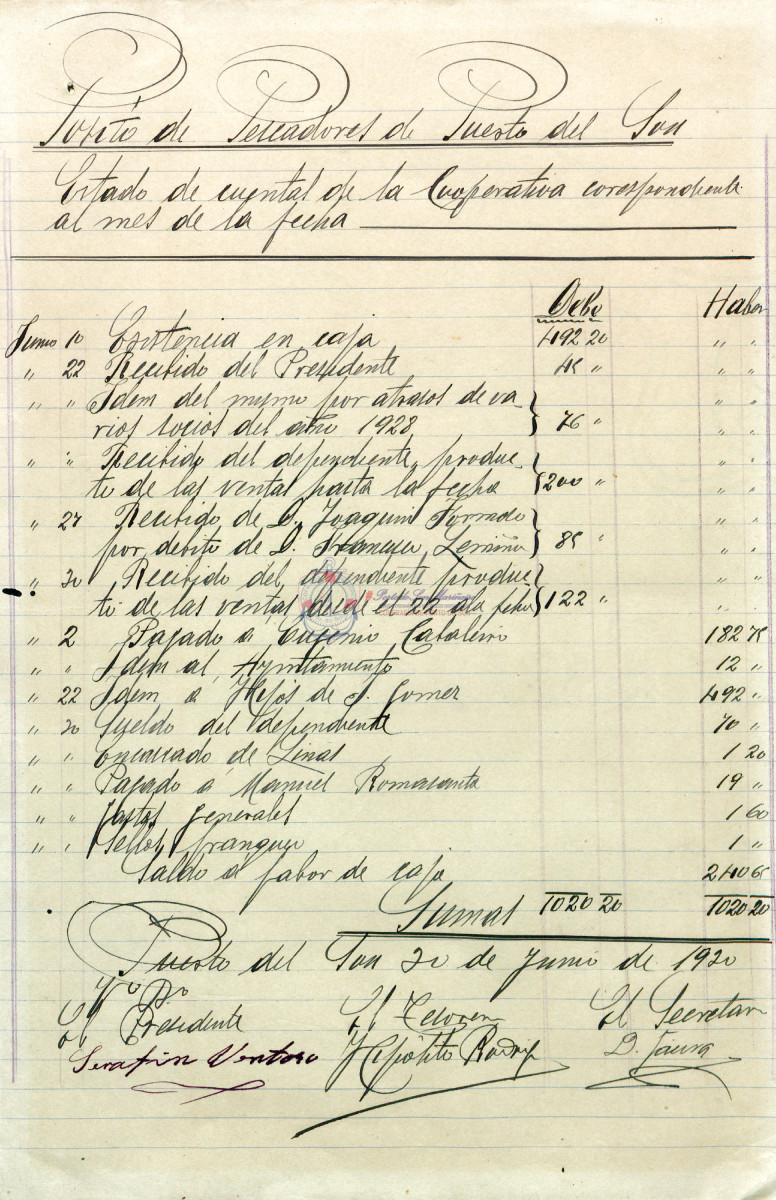 Posito de Pescadores de Puerto del Son
Estado de cuentas de la Cooperativa corespondiente
al mes de la fecha
Debe Haber
Junio 10 Existencia en caja 492 20 " "
" 22 Recibido del Presidente 45 " " "
" " Idem del mismo por atrasos de va
rios socios del año 1928 76 " " "
" " Recibido del dependiente, produc-
to de las ventas hasta la fecha 200 " " "
" 27 Recibido de D. Joaquin Torrado
por debito de D. Francisco 85 " " "
" 30 Recibido del dependiente produc-
to de las ventas desde el 22 a la fecha 122 " " "
" 2 Pagado a Eugenio Cabaleiro 182 75
" " Idem al Ayuntamiento 12 "
" 22 Idem a Hijos de J. Gomez 492 "
" 30 Sueldo del dependiente 70 "
" " de 1 20
" " Pagado a Manuel Romasanta 19 "
" " Gastos generales 1 60
" " Sellos franqueo 1 "
Saldo a fabor de caja 240 65
Sumas 1020 20 1020 20
Puerto del Son 30 de Junio de 1930
Vº Bº
El Presidente El Tesorero El Secretario
Serafin Ventoso Hipólito Rodrig D.